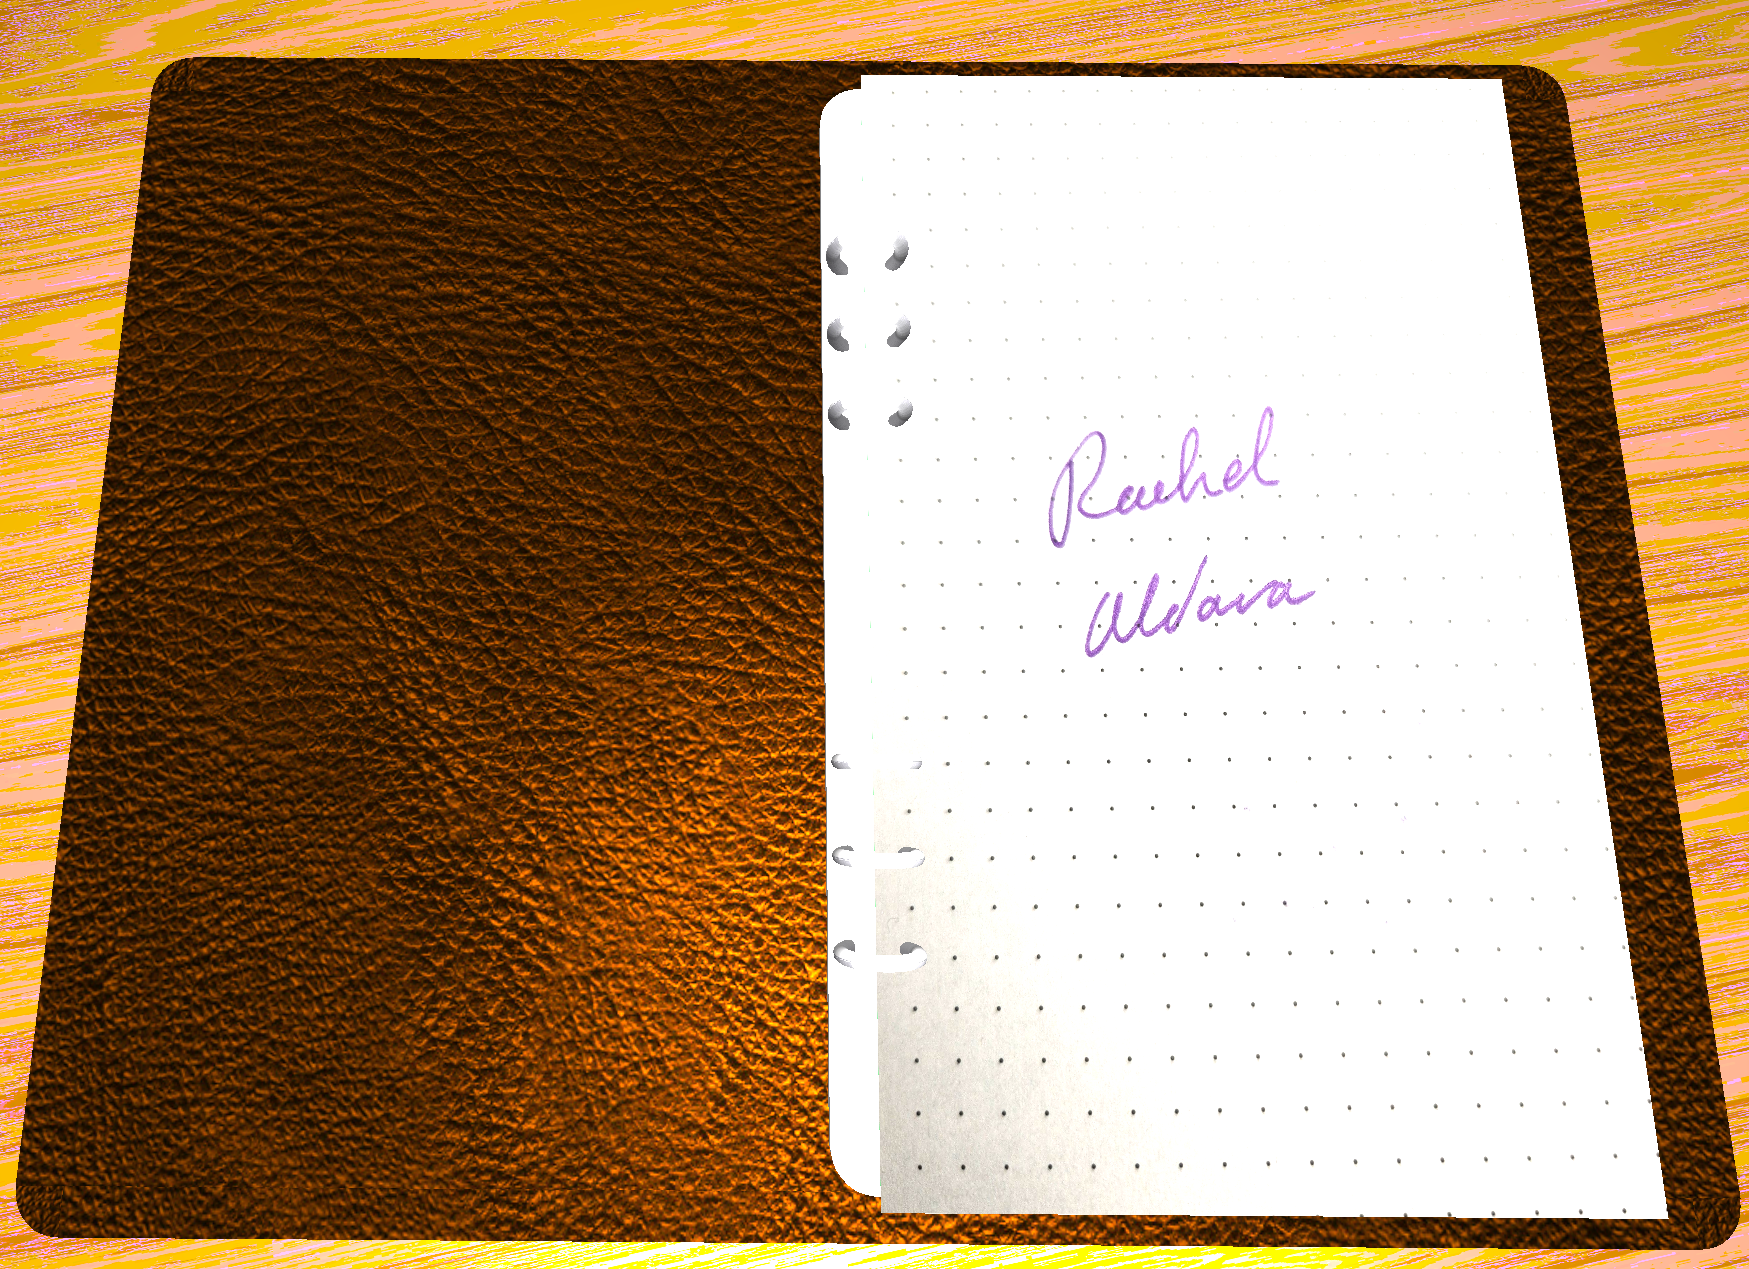 Rachel
Aldava